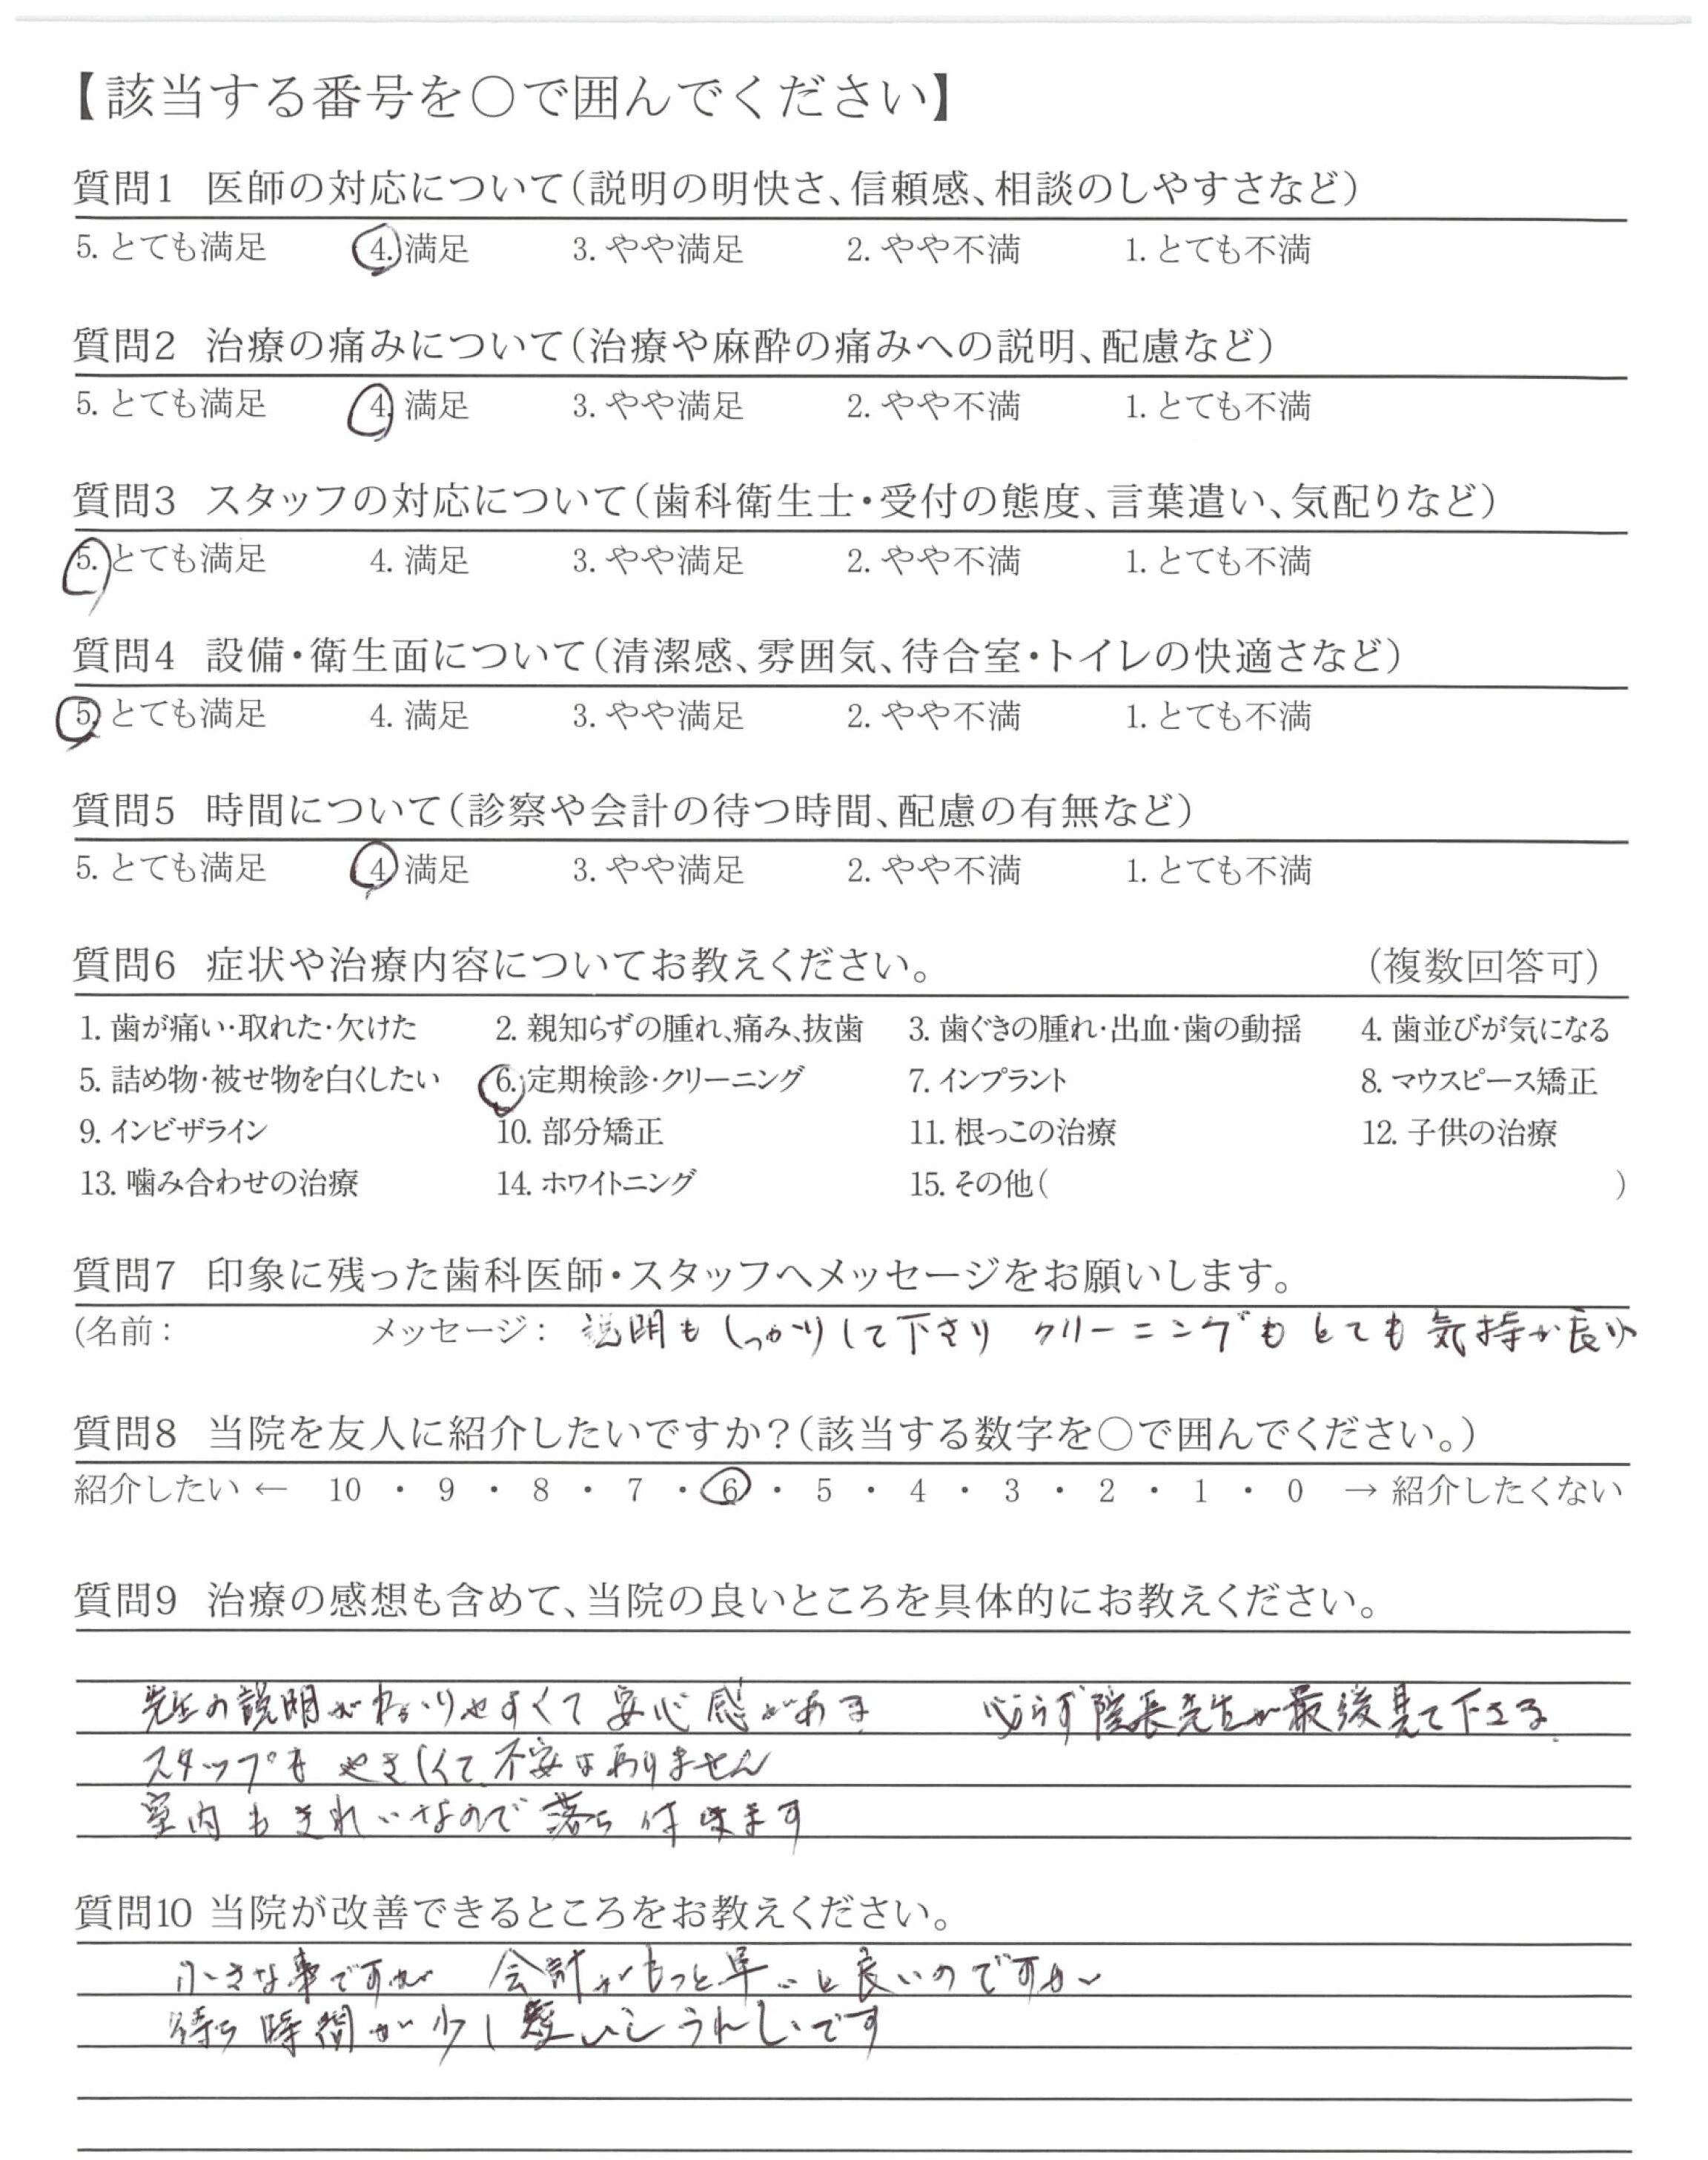 【該当する番号を〇で囲んでください】
質問1 医師の対応について（説明の明快さ、信頼感、相談のしやすさなど）
5. とても満足 4. 満足 3. やや満足 2. やや不満 1. とても不満
質問2 治療の痛みについて（治療や麻酔の痛みへの説明、配慮など）
5. とても満足 4. 満足 3. やや満足 2. やや不満 1. とても不満
質問3 スタッフの対応について（歯科衛生士・受付の態度、言葉遣い、気配りなど）
5. とても満足 4. 満足 3. やや満足 2. やや不満 1. とても不満
質問4 設備・衛生面について（清潔感、雰囲気、待合室・トイレの快適さなど）
5. とても満足 4. 満足 3. やや満足 2. やや不満 1. とても不満
質問5 時間について（診察や会計の待つ時間、配慮の有無など）
5. とても満足 4. 満足 3. やや満足 2. やや不満 1. とても不満
質問6 症状や治療内容についてお教えください。 （複数回答可）
1. 歯が痛い・取れた・欠けた 2. 親知らずの腫れ、痛み、抜歯 3. 歯ぐきの腫れ・出血・歯の動揺 4. 歯並びが気になる
5. 詰め物・被せ物を白くしたい 6. 定期検診・クリーニング 7. インプラント 8. マウスピース矯正
9. インビザライン 10. 部分矯正 11. 根っこの治療 12. 子供の治療
13. 噛み合わせの治療 14. ホワイトニング 15. その他（ ）
質問7 印象に残った歯科医師・スタッフへメッセージをお願いします。
（名前： メッセージ： 説明もしっかりして下さり クリーニングもとても気持が良い
質問8 当院を友人に紹介したいですか？（該当する数字を〇で囲んでください。）
紹介したい ← 10 ・ 9 ・ 8 ・ 7 ・ 6 ・ 5 ・ 4 ・ 3 ・ 2 ・ 1 ・ 0 → 紹介したくない
質問9 治療の感想も含めて、当院の良いところを具体的にお教えください。
先生の説明がわかりやすくて安心感がある 必らず院長先生が最後見て下さる
スタッフもやさしくて不安はありません
室内もきれいなので落ち付けます
質問10 当院が改善できるところをお教えください。
小さな事ですが 会計がもっと早いと良いのですが
待ち時間が少し短いとうれしいです